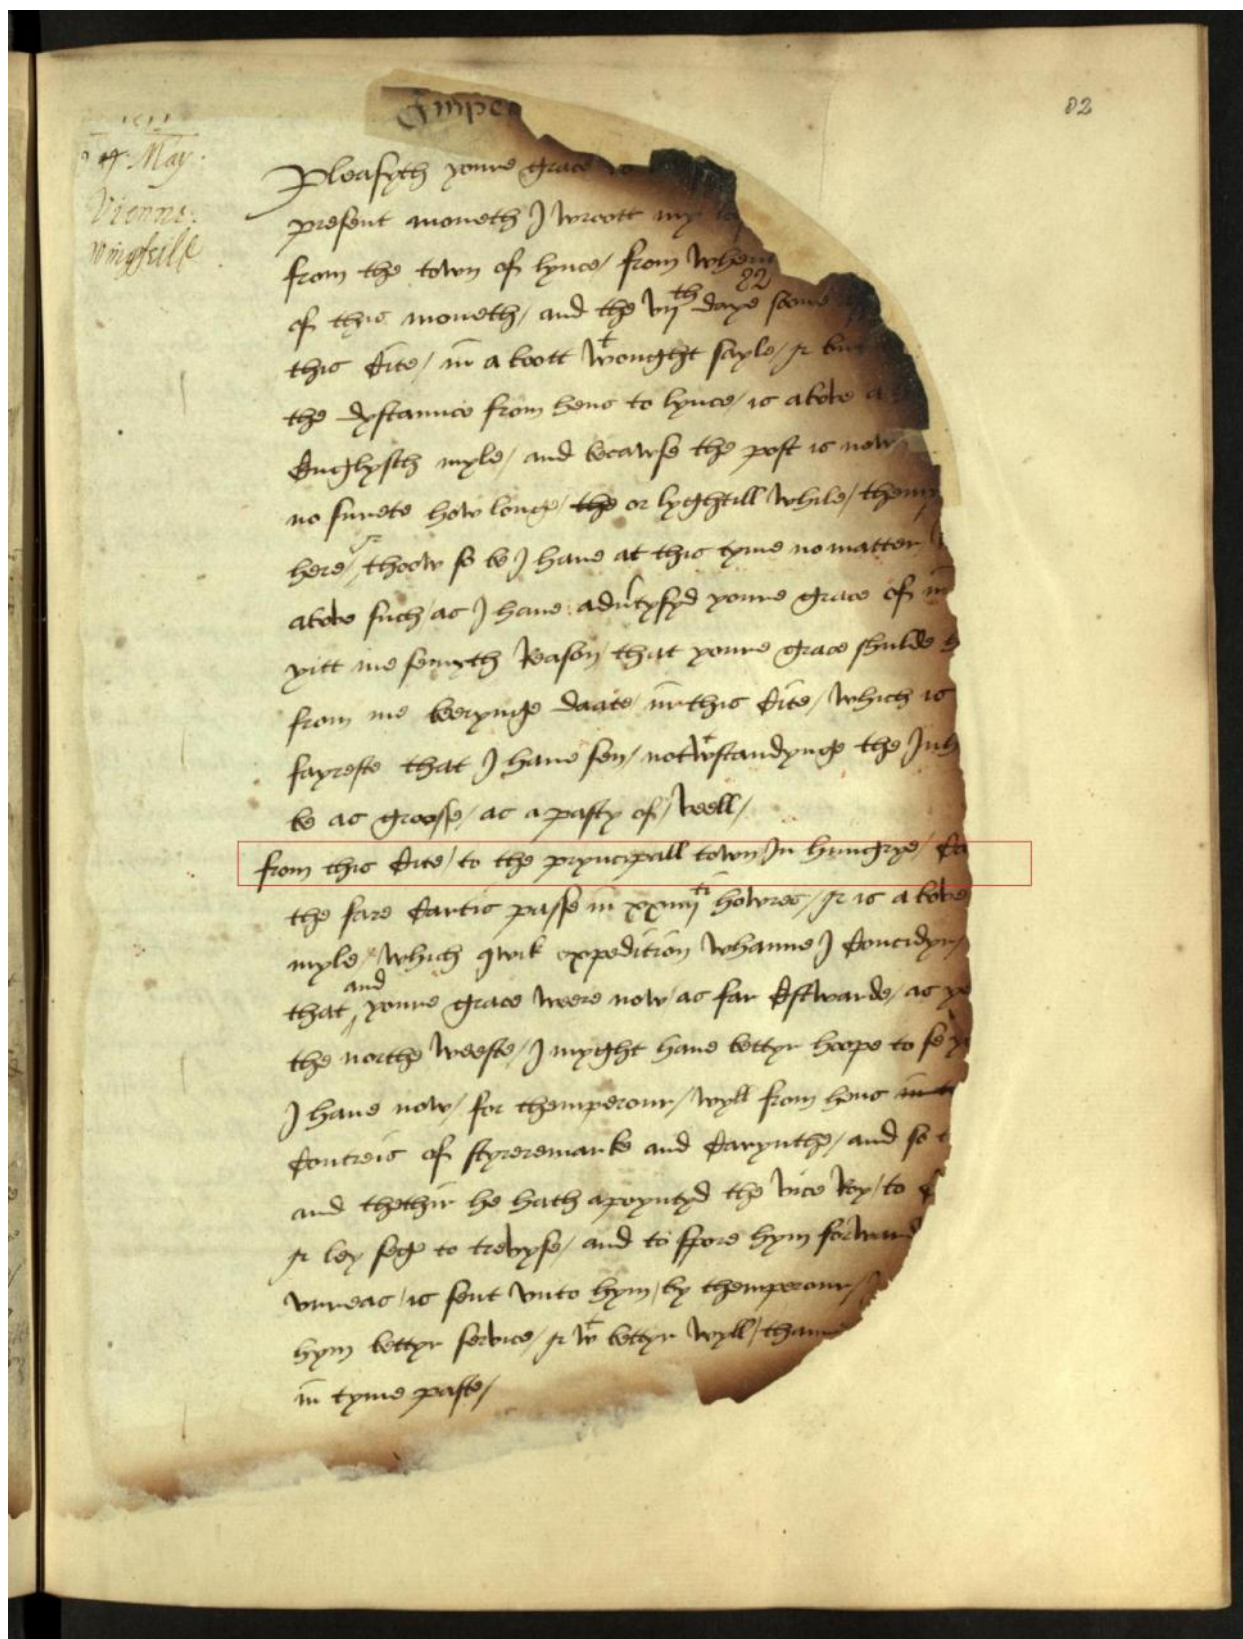 Imper
82
1511
4 May.
Vienne.
Wingfeild
Pleasyth youre grace to
present moneth I wroott my
from the town of lynce / from whens
82
of this moneth / and the vijth daye
this Cite / in a boott wt owght sayle /
the dystannce from hens to lynce / is above a
Englysch myle / and becawse the post is now
no surete how longe / the or lyghtill while / themp
here / thoow so be I have at this tyme no matter
above such as I have advertysyd youre grace of in
yitt me semyth Reason that youre grace shulde
from me beerynge daate in this Cite / which is
fayreste that I have sen / notwtstandynge the Inh
be as groosse / as a pasty of / well /
from this Cite / to the pryncypall town In hungrye / Ca
the fare Cartis passe in xxiiijti howres / is above
myle / which qwik expedicion whanne I Concidyr
that and youre grace weere now / as far Estwarde / as
the northe weeste / I myght have bettyr hoope to se
I have now / for themperour / wyll from hens in
Contreis of styreremarke and Carynthe / and so
and thethir he hath apoyntyd the vice Roy / to
ley sege to trevyse / and to spore hym forward
vrreas / is sent vnto hym / by themperour /
hym bettyr service / wt bettyr wyll / thanne
in tyme paste /